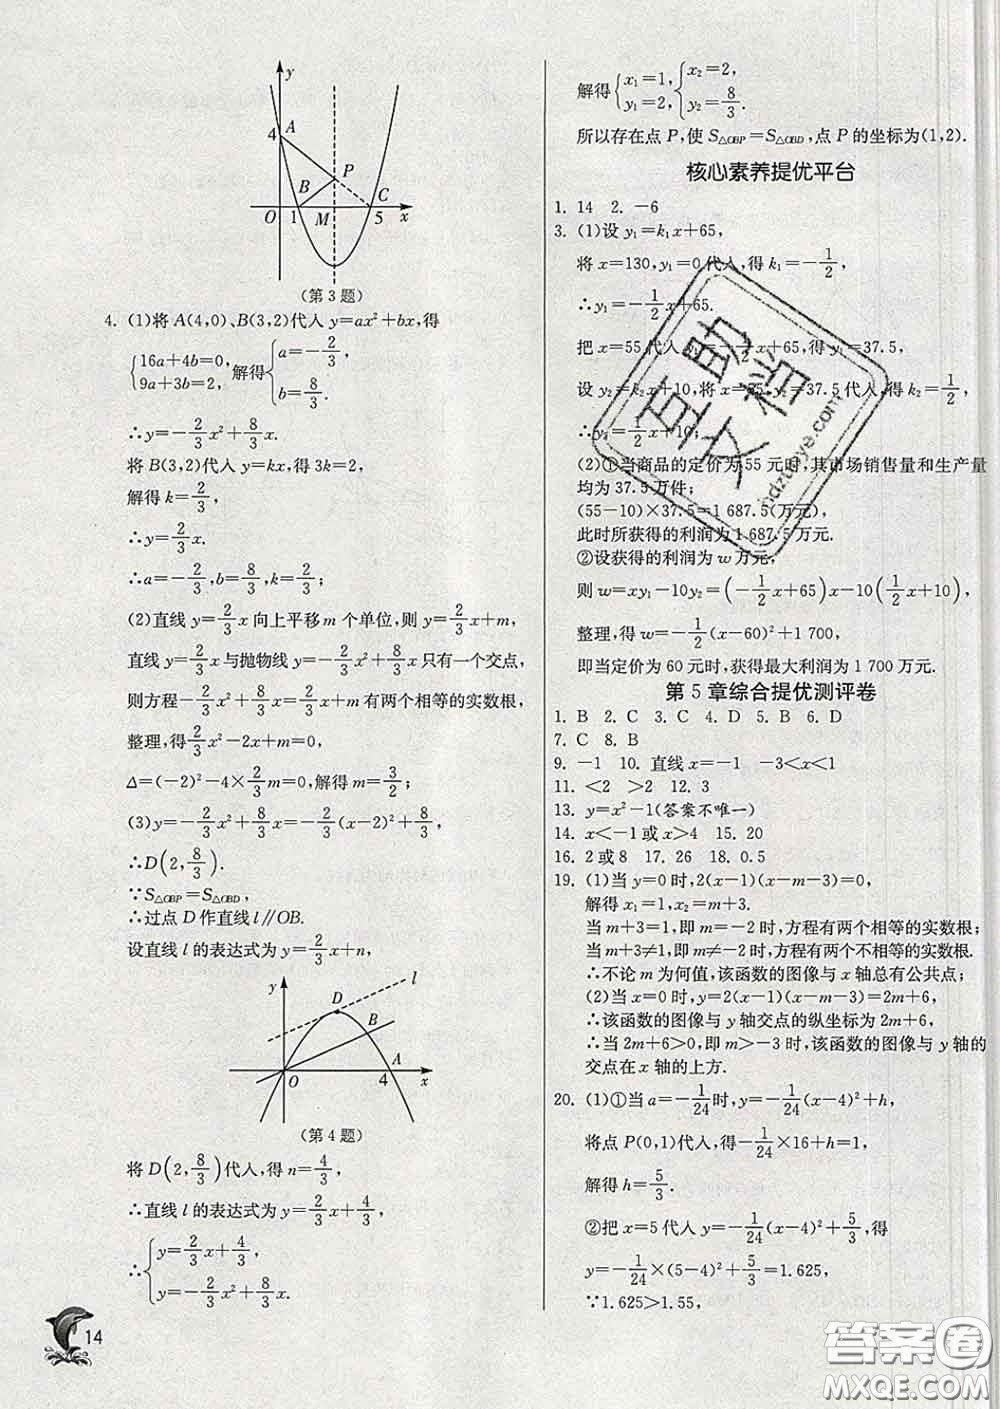 y
4 A
P
B
C
O 1 M 5 x
(第3题)
4. (1)将 A(4,0)、B(3,2)代入 y=ax²+bx,得
{16a+4b=0, 9a+3b=2, 解得{a=-2/3, b=8/3.
∴y=-2/3x²+8/3x.
将 B(3,2)代入 y=kx,得 3k=2,
解得 k=2/3,
∴y=2/3x.
∴a=-2/3,b=8/3,k=2/3;
(2)直线 y=2/3x 向上平移 m 个单位,则 y=2/3x+m,
直线 y=2/3x 与抛物线 y=-2/3x²+8/3x 只有一个交点,
则方程-2/3x²+8/3x=2/3x+m 有两个相等的实数根,
整理,得2/3x²-2x+m=0,
Δ=(-2)²-4×2/3m=0,解得 m=3/2;
(3)y=-2/3x²+8/3x=-2/3(x-2)²+8/3,
∴D(2,8/3).
∵S△OBP=S△OBD,
∴过点 D 作直线 l∥OB.
设直线 l 的表达式为 y=2/3x+n,
y
D
l
B
A
O 4 x
(第4题)
将 D(2,8/3)代入,得 n=4/3,
∴直线 l 的表达式为 y=2/3x+4/3,
∴{y=2/3x+4/3, y=-2/3x²+8/3x.
14
解得{x₁=1, y₁=2, {x₂=2, y₂=8/3.
所以存在点 P,使 S△OBP=S△OBD,点 P 的坐标为(1,2).
核心素养提优平台
1. 14 2. -6
3. (1)设 y₁=k₁x+65,
将 x=130,y₁=0代入,得 k₁=-1/2,
∴y₁=-1/2x+65.
把 x=55 代入 y₁=-1/2x+65,得 y₁=37.5,
设 y₂=k₂x+10,将 x=55,y₂=37.5代入,得 k₂=1/2,
∴y₂=1/2x+10;
(2)①当商品的定价为 55 元时,其市场销售量和生产量
均为 37.5万件;
(55-10)×37.5=1 687.5(万元),
此时所获得的利润为 1 687.5 万元;
②设获得的利润为 w 万元,
则 w=xy₁-10y₂=(-1/2x+65)x-10(1/2x+10),
整理,得 w=-1/2(x-60)²+1 700,
即当定价为 60 元时,获得最大利润为 1 700 万元.
第5章综合提优测评卷
1. B 2. C 3. C 4. D 5. B 6. D
7. C 8. B
9. -1 10. 直线 x=-1 -3<x<1
11. <2 >2 12. 3
13. y=x²-1(答案不唯一)
14. x<-1 或 x>4 15. 20
16. 2 或 8 17. 26 18. 0.5
19. (1)当 y=0 时,2(x-1)(x-m-3)=0,
解得 x₁=1,x₂=m+3.
当 m+3=1,即 m=-2 时,方程有两个相等的实数根;
当 m+3≠1,即 m≠-2 时,方程有两个不相等的实数根.
∴不论 m 为何值,该函数的图像与 x 轴总有公共点;
(2)当 x=0 时,y=2(x-1)(x-m-3)=2m+6,
∴该函数的图像与 y 轴交点的纵坐标为 2m+6,
∴当 2m+6>0,即 m>-3 时,该函数的图像与 y 轴的
交点在 x 轴的上方.
20. (1)①当 a=-1/24时,y=-1/24(x-4)²+h,
将点 P(0,1)代入,得-1/24×16+h=1,
解得 h=5/3.
②把 x=5 代入 y=-1/24(x-4)²+5/3,得
y=-1/24×(5-4)²+5/3=1.625,
∵1.625>1.55,
互助文档
答案圈
MXQE.COM